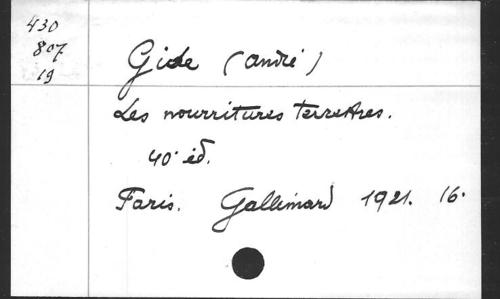 430
807
19
Gide (André)
Les nourritures terrestres.
40. éd.
Paris. Gallimard 1921. 16.